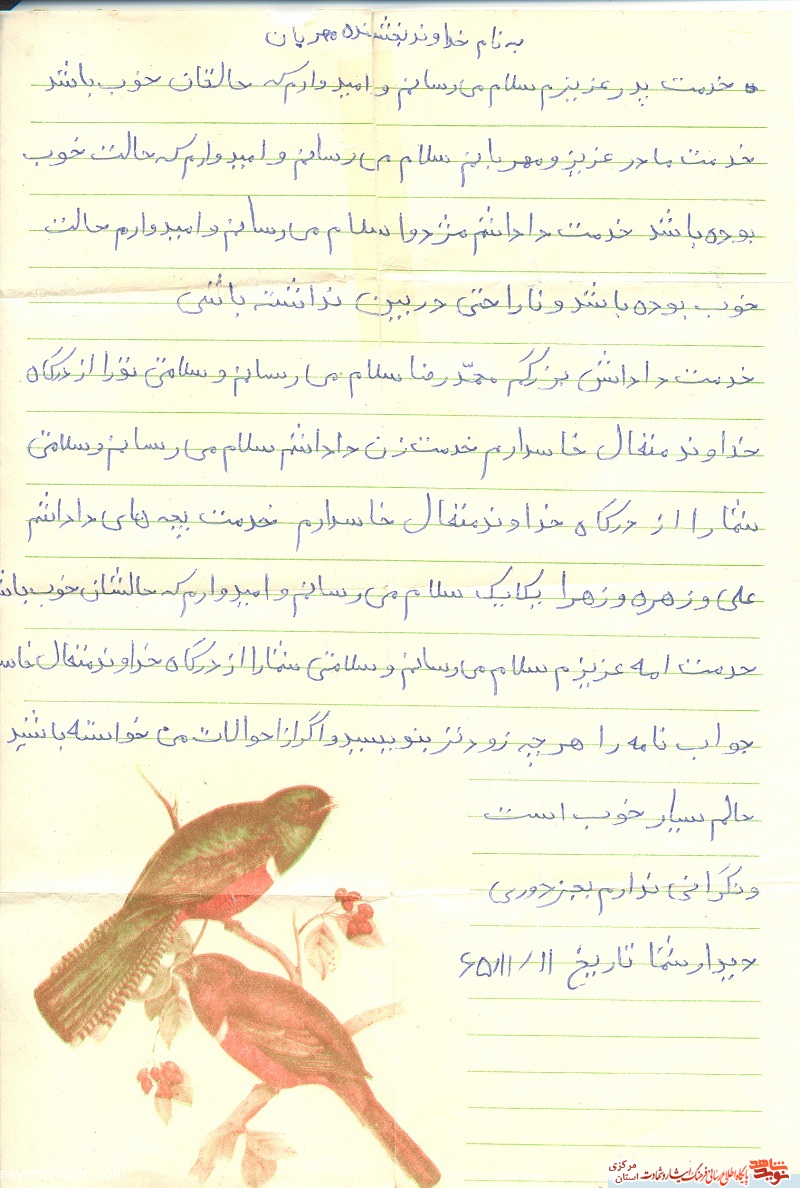 به نام خداوند بخشنده مهربان
خدمت پدر عزیزم سلام می رسانم و امیدوارم که حالتان خوب باشد
خدمت مادر عزیز و مهربانم سلام می رسانم و امیدوارم که حالت خوب
بوده باشد خدمت داداشم سلام می رسانم و امیدوارم حالت
خوب بوده باشد و ناراحتی در بین نداشته باشی
خدمت داداش بزرگم محمّد رضا سلام می رسانم و سلامتی تورا از درگاه
خداوند متعال خاسدارم خدمت زن داداشم سلام می رسانم و سلامتی
شما را از درگاه خداوند متعال خاسدارم خدمت بچه های داداشم
علی و زهره و زهرا یکایک سلام می رسانم و امیدوارم که حالشان خوب باش
خدمت امه عزیزم سلام می رسانم و سلامتی شما را از درگاه خداوند متعال خاس
جواب نامه را هر چه زودتر بنویسید و اگر از احوالات من خواسته باشید
حالم بسیار خوب است
و نگرانی ندارم بجز دوری
دیدار شما تاریخ ۶۵/۱۱/۱۱
نوید شاهد
پایگاه اطلاع رسانی فرهنگ ایثار و شهادت استان مرکزی